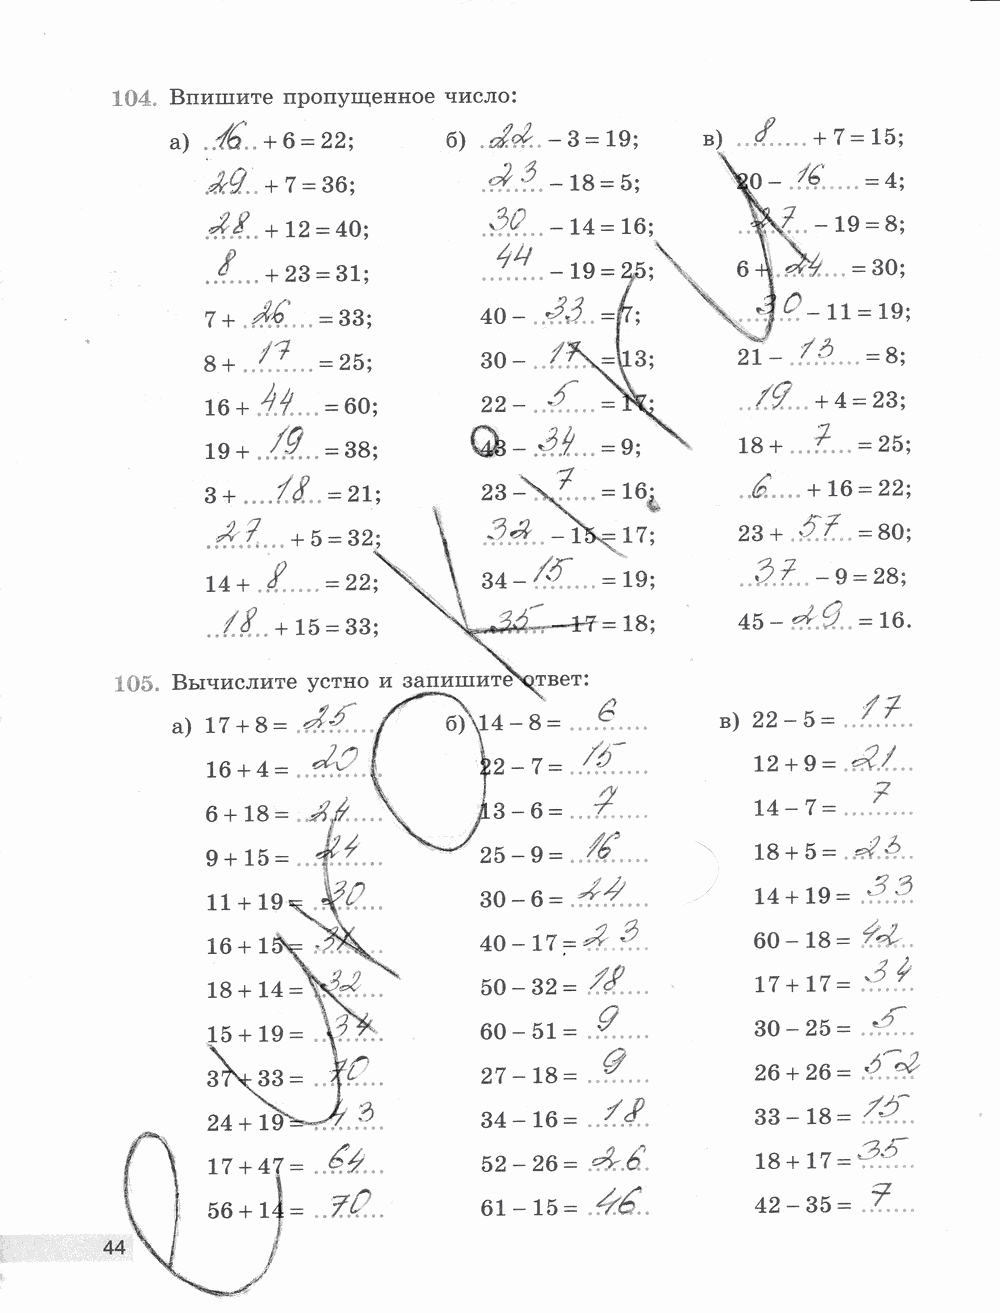 104. Впишите пропущенное число:
а) 16 + 6 = 22; б) 22 − 3 = 19; в) 8 + 7 = 15;
29 + 7 = 36; 23 − 18 = 5; 20 − 16 = 4;
28 + 12 = 40; 30 − 14 = 16; 27 − 19 = 8;
8 + 23 = 31; 44 − 19 = 25; 6 + 24 = 30;
7 + 26 = 33; 40 − 33 = 7; 30 − 11 = 19;
8 + 17 = 25; 30 − 17 = 13; 21 − 13 = 8;
16 + 44 = 60; 22 − 5 = 17; 19 + 4 = 23;
19 + 19 = 38; 43 − 34 = 9; 18 + 7 = 25;
3 + 18 = 21; 23 − 7 = 16; 6 + 16 = 22;
27 + 5 = 32; 32 − 15 = 17; 23 + 57 = 80;
14 + 8 = 22; 34 − 15 = 19; 37 − 9 = 28;
18 + 15 = 33; 35 − 17 = 18; 45 − 29 = 16.
105. Вычислите устно и запишите ответ:
а) 17 + 8 = 25 б) 14 − 8 = 6 в) 22 − 5 = 17
16 + 4 = 20 22 − 7 = 15 12 + 9 = 21
6 + 18 = 24 13 − 6 = 7 14 − 7 = 7
9 + 15 = 24 25 − 9 = 16 18 + 5 = 23
11 + 19 = 30 30 − 6 = 24 14 + 19 = 33
16 + 15 = 31 40 − 17 = 23 60 − 18 = 42
18 + 14 = 32 50 − 32 = 18 17 + 17 = 34
15 + 19 = 34 60 − 51 = 9 30 − 25 = 5
37 + 33 = 70 27 − 18 = 9 26 + 26 = 52
24 + 19 = 43 34 − 16 = 18 33 − 18 = 15
17 + 47 = 64 52 − 26 = 26 18 + 17 = 35
56 + 14 = 70 61 − 15 = 46 42 − 35 = 7
44